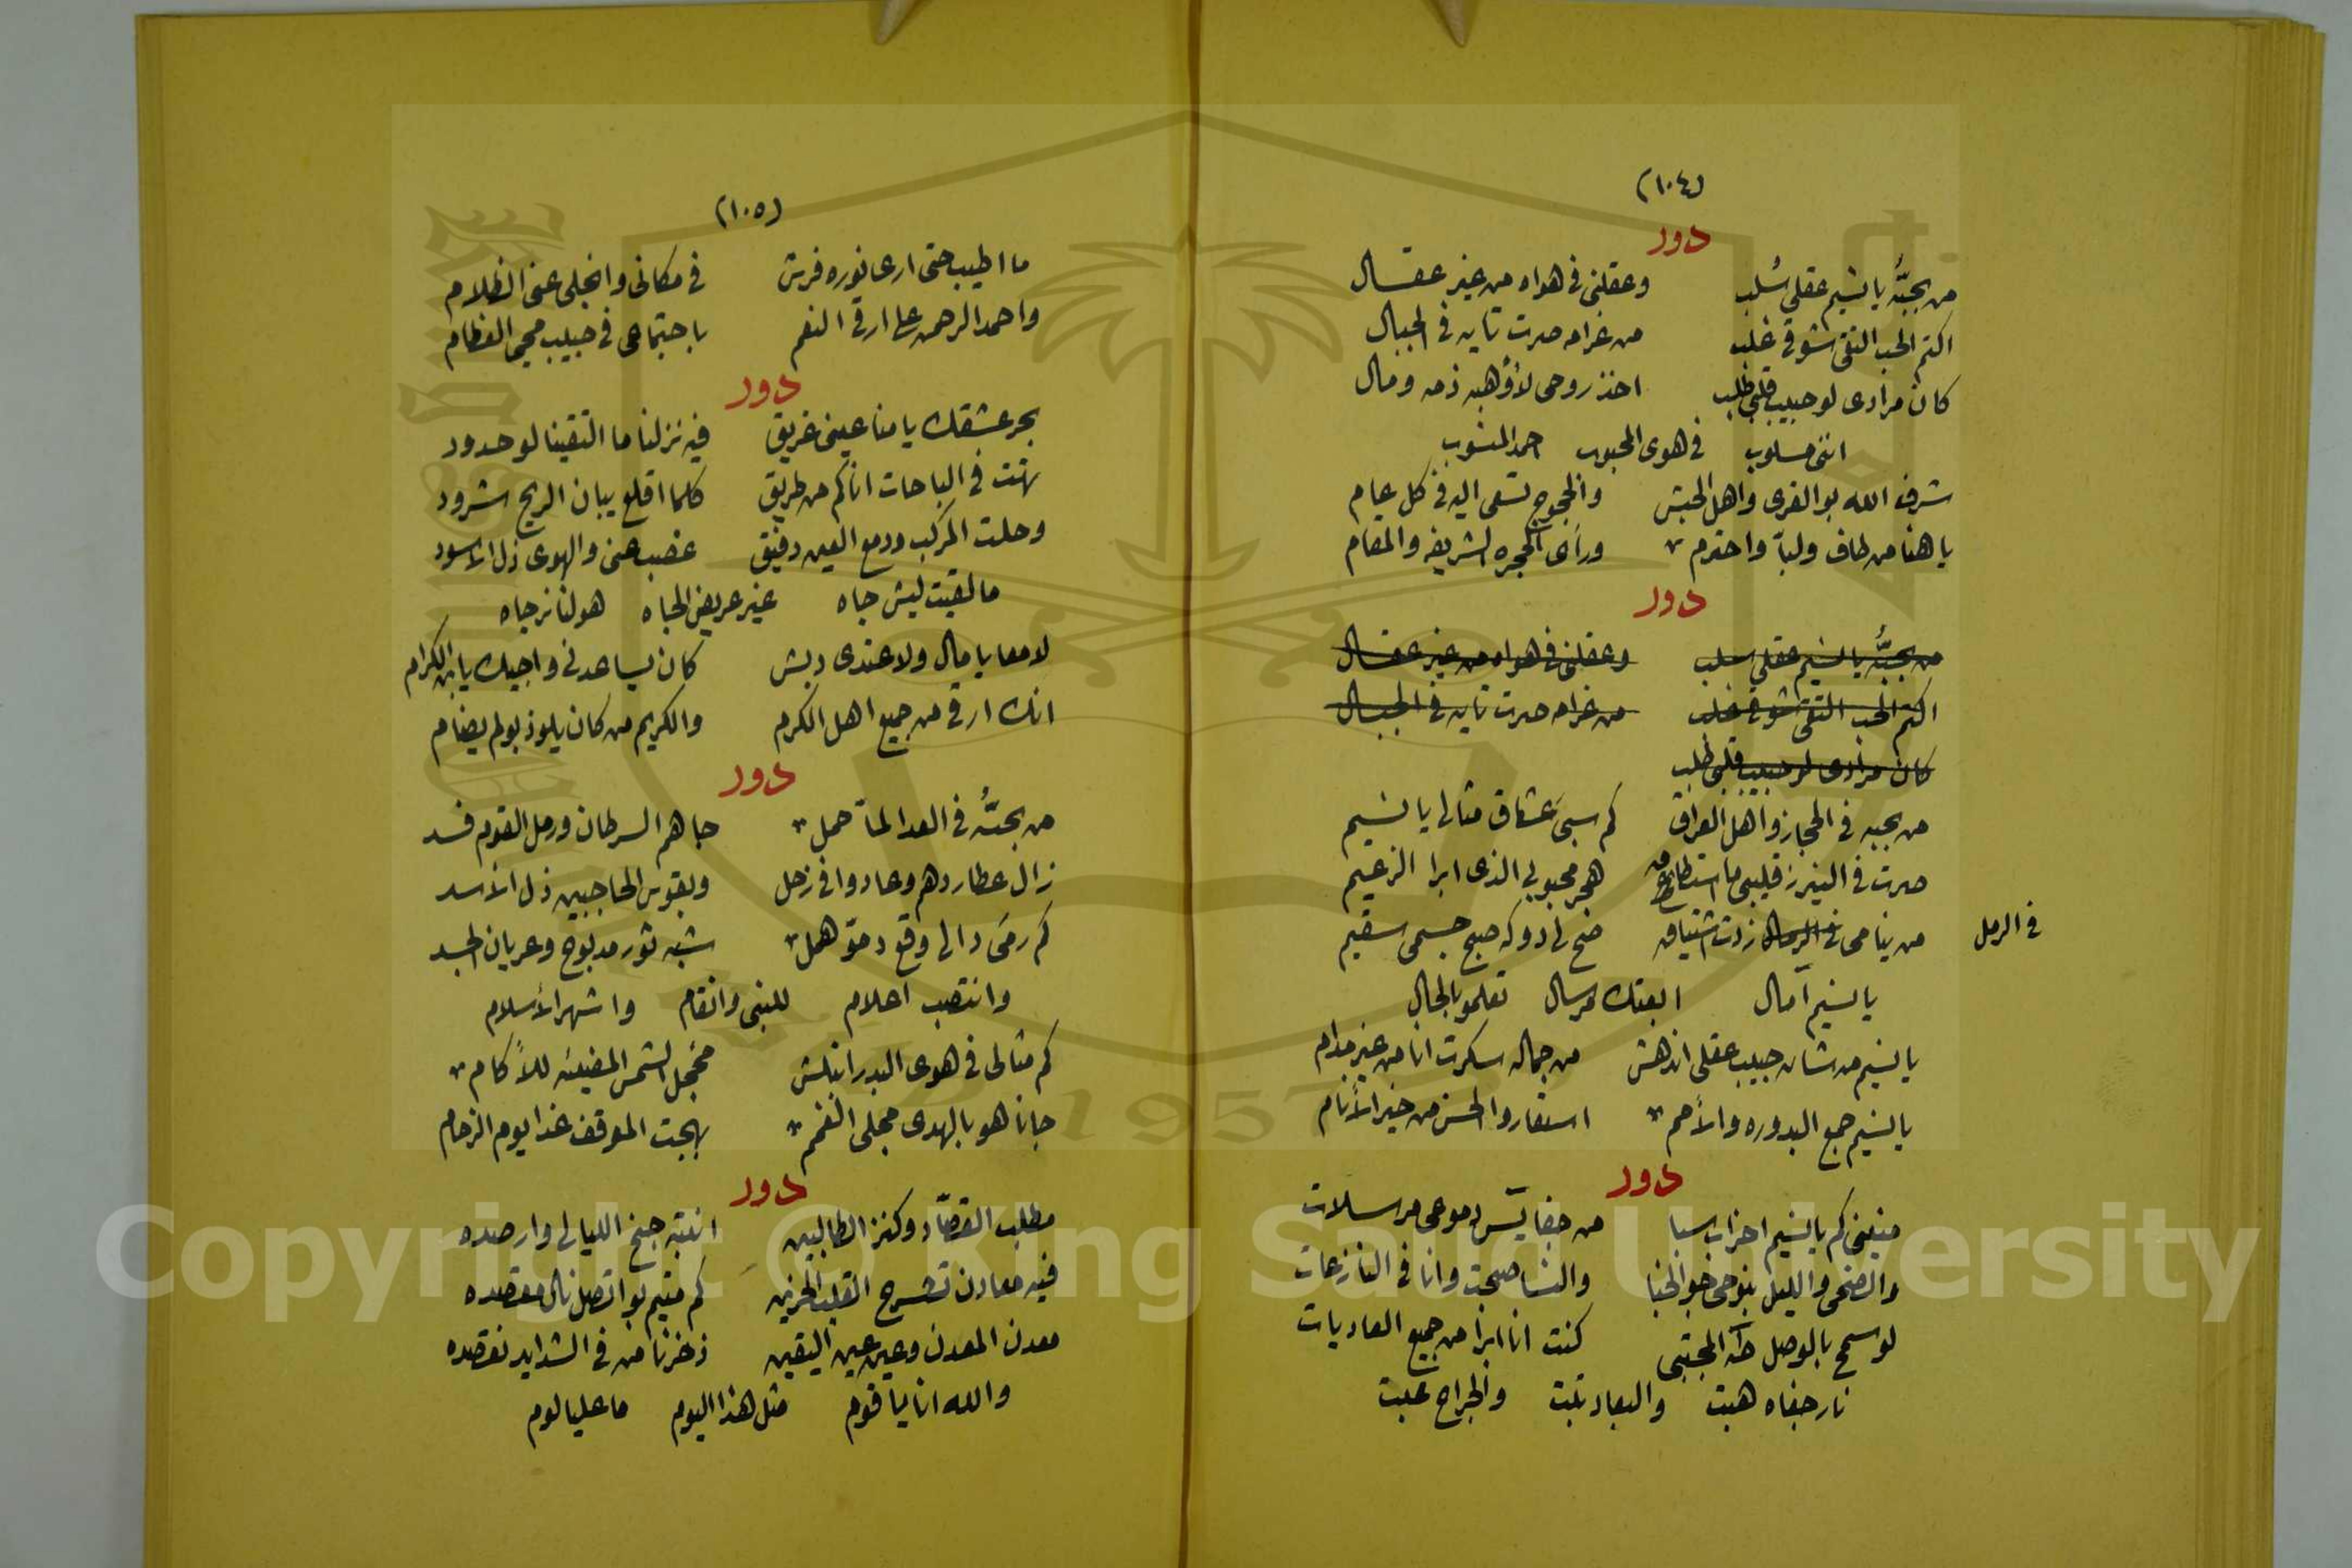 (١٠٤)
دور
من بحبُّه يا نسيم عقلي سُلب وعقلنى فى هواه من غير عقال
اكتم الحب التقى شوقى غلب من غرامه صرت تايه فى الجبال
كان مرادى لو حبيب قلبي طلب اخذ روحى لأوهبه ذمه ومال
اننى مسلوب فى هوى المحبوب احمد المنسوب
شرف الله بو القرى واهل الحبش والحجوج تسعى اليه فى كل عام
يا هنا من طاف ولبّا واحترم ورأى الحجره الشريفه والمقام
دور
من بحبُّه يا نسيم عقلي سلب وعقلنى فى هواه من غير عقال
اكتم الحب التقى شوقى غلب من غرامه صرت تايه فى الجبال
كان مرادى لو حبيب قلبى طلب
من بحبه فى الحجاز واهل العراق كم سبى عشاق مثالى يا نسيم
صرت فى النيرز قليبى ما استطاع هجر محبوبى الذى ابرا الزعيم
من ينامى فى الرمال زدت اشتياق صح لى دوكه صبح جسمى سقيم
فى الرمل
يا نسيم آمال ابعتك مرسال تعلمو بالحال
يا نسيم من شان حبيب عقلى اندهش من جماله سكرت انا من غير مدام
يا نسيم جمع البدوره والأمم استعاروا الحسن من خير الأنام
دور
منيتى كم يا نسيم احزاب سبا من جفا يٓس دموعى مرسلات
والضحى والليل بنوحى جو الخبا والنسا صبحت وانا فى النازعات
لو سمح بالوصل طٓه المجتبى كنت انا ابرا من جميع العاديات
نار جفاه هبت والبعاد تبت والجراح عبت
(١٠٥)
ما اطيب حتى ارى نوره فرش فى مكانى وانجلى عنى الظلام
واحمد الرحمن على ارقى النعم باجتماعى فى حبيب محيى العظام
دور
بحر عشقك يا منا عينى غريق فيه نزلنا ما التقينا لو حدود
تهت فى الباحات اناكم من طريق كلما اقلع يبان الريح شرود
وحلت المركب ودمع العين دفيق غصب عنى والهوى ذل الأسود
ما لقيت ليش جاه غير عريض الجاه هو لنا نرجاه
لا معايا مال ولا عندى دبش كان يساعدنى واجيلك يا ابن الكرام
انك ارقى من جميع اهل الكرم والكريم من كان يلوذ بو لم يضام
دور
من بحبُّه فى العدا لمّا حمل جاهم السرطان ورمل القوم فسد
زال عطاردهم وعادوا فى زحل وبقوس الحاجبين ذل الأسد
كم رمَى دالى وقع دمّو همل شبه ثور مدبوح وعريان الجسد
وانتصب احلام للنبى وانقام واشهر الأسلام
كم مثالى فى هوى البدر انبلش مخجل الشمس المضيئه للأكام
جانا هو بالهدى مجلى الغمم بهجت الموقف غدا يوم الزحام
دور
مطلب القصّاد وكنز الطالبين انتبه جنح الليالى وارصده
فيه معادن تشرح القلب الحزين كم متيم بو اتصل نال مقصده
معدن المعدن وعين عين اليقين ذخرنا من فى الشدايد نقصده
والله انا يا قوم مثل هذا اليوم ما عليا لوم